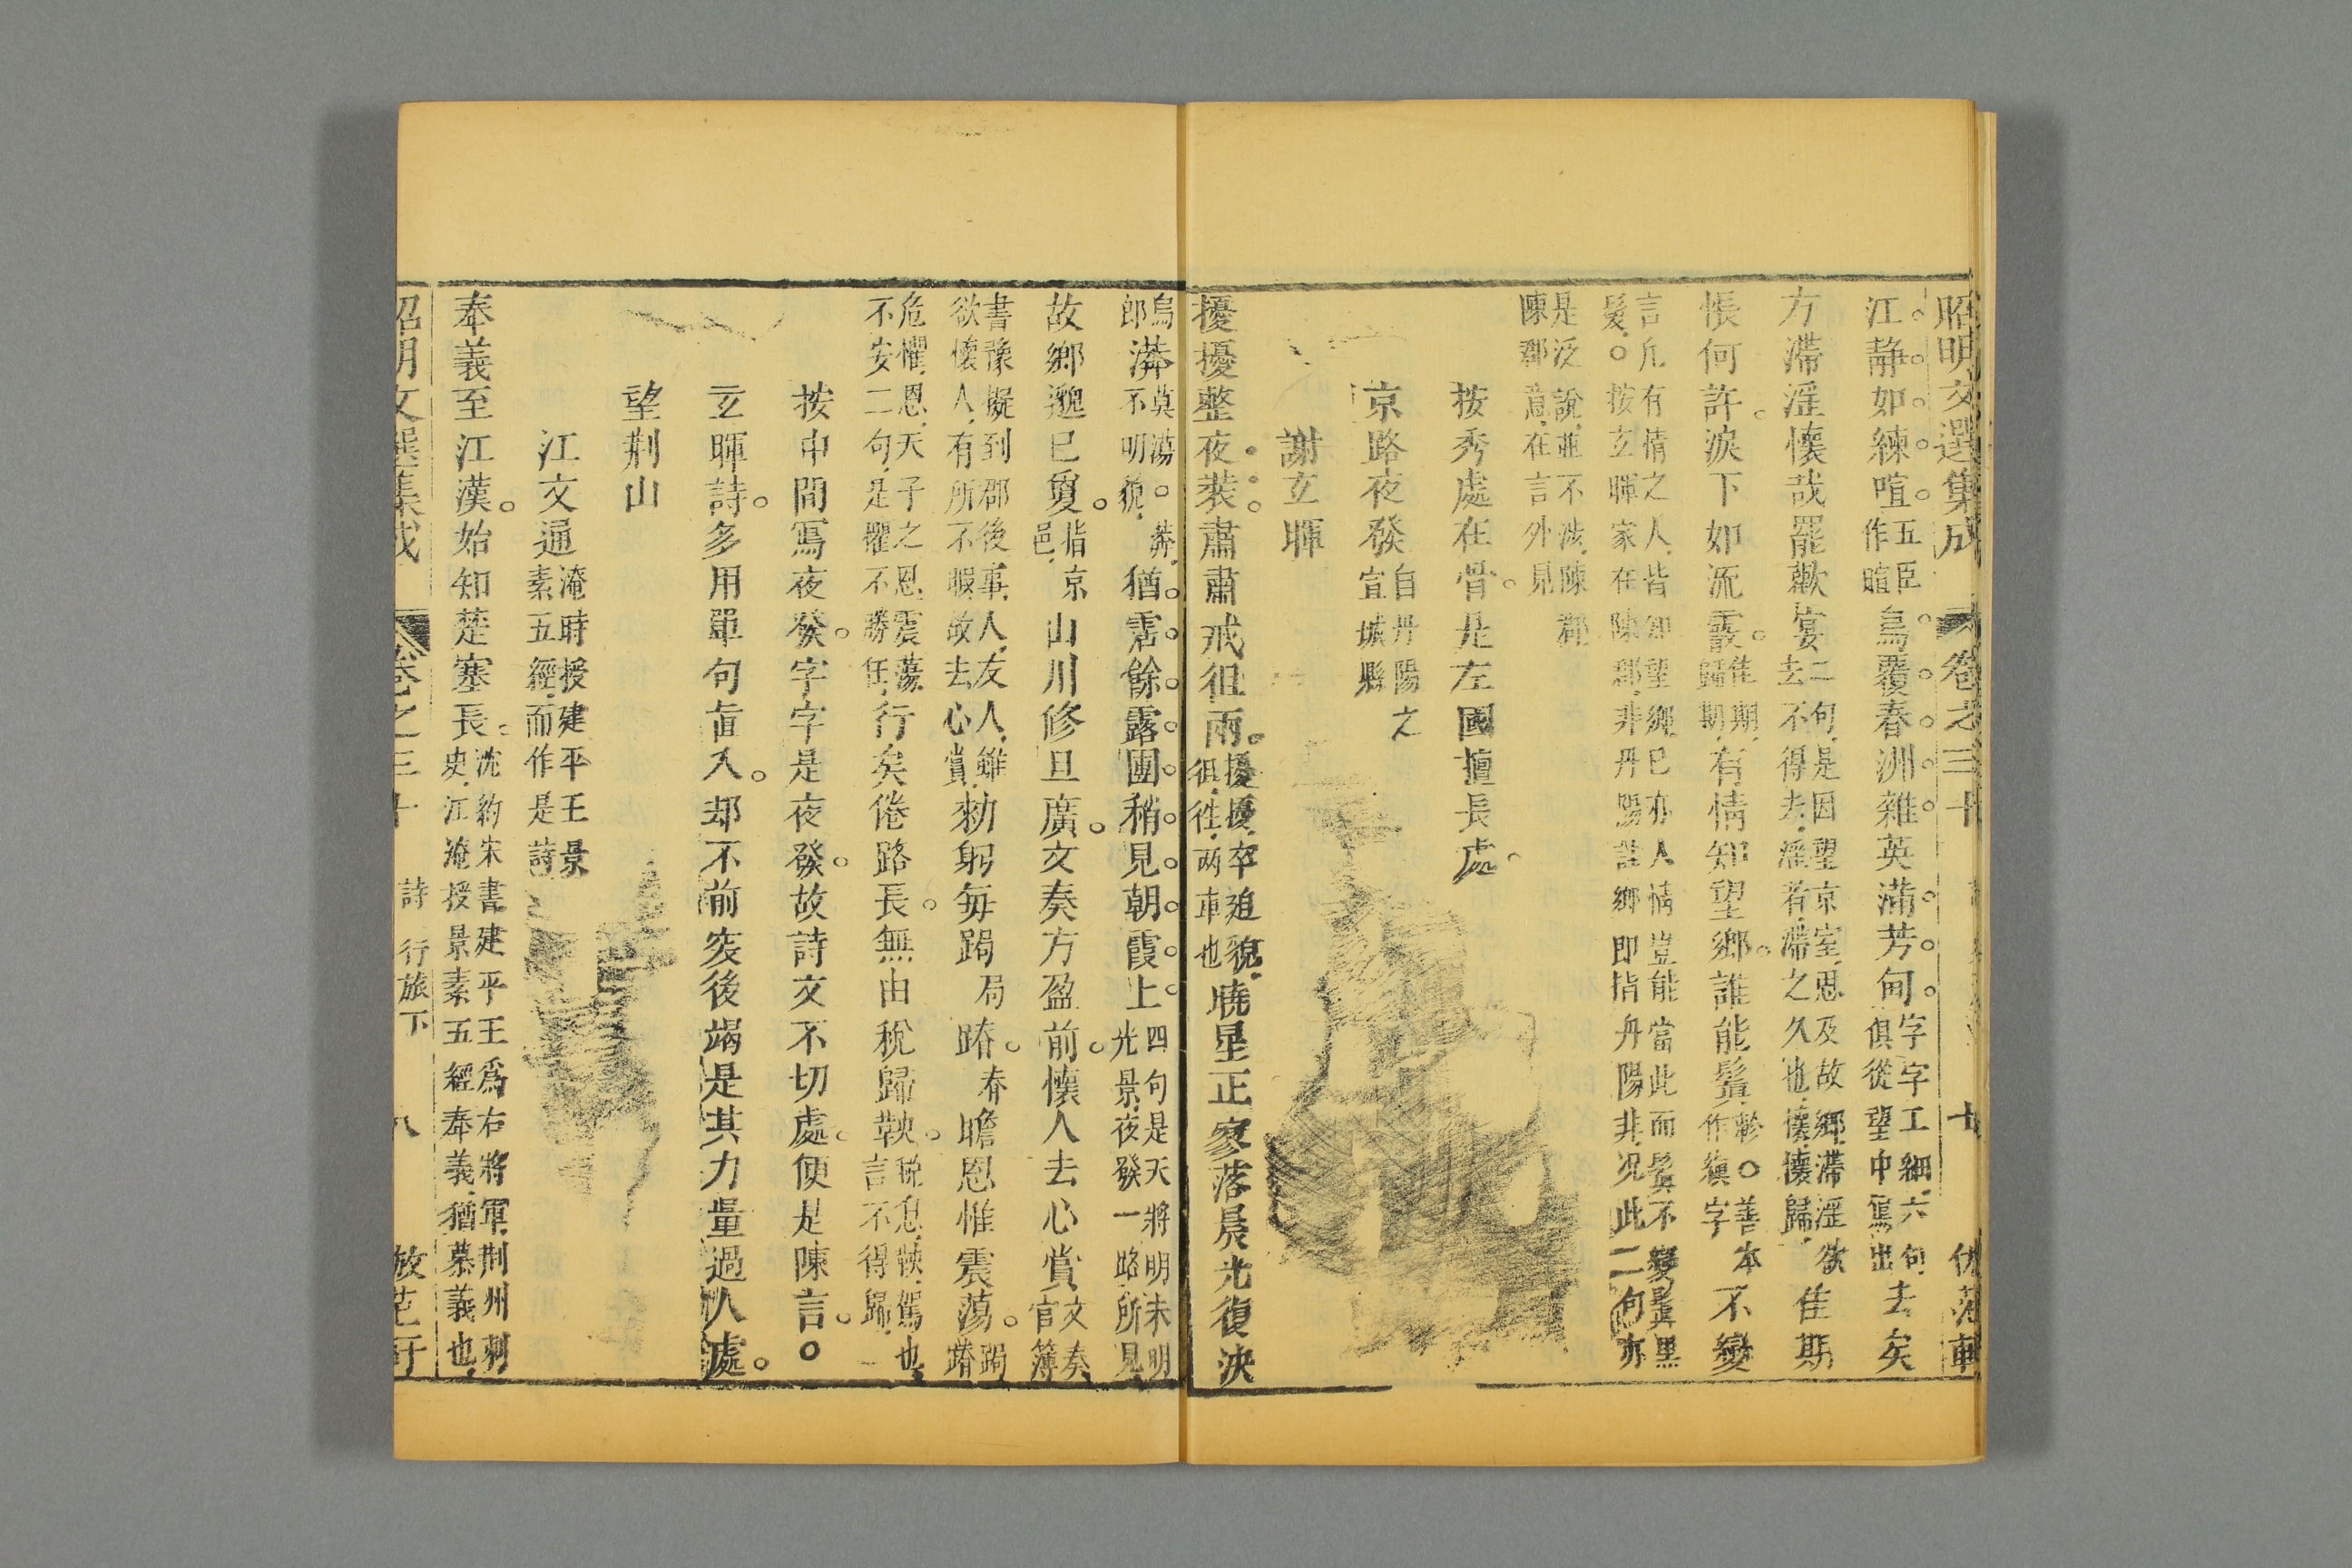 昭明文選集成 卷之三十
江靜如練喧五臣作暄鳥覆春洲雜英滿芳甸字字工細六句俱從望中寫出去矣
方滯淫懷哉罷歡宴二句是因望京室思及故鄉滯淫欲去不得去淫若滯之久也懷懷歸佳期
悵何許淚下如流霰佳期歸期有情知望鄉誰能鬒軫○善本作縝字不變
言凡有情之人皆知望鄉已亦人情豈能當此而鬒不變鬒黑髮○按玄暉家在陳郡非丹陽註鄉即指丹陽非况此二句亦
是泛說並不涉陳郡陳鄰意在言外見
按秀處在骨是左國擅長處
京路夜發自丹陽之宣城縣
謝玄暉
擾擾整夜裝肅肅戒徂兩擾擾卒迫貌徂徃兩車也曉星正寥落晨光復泱
烏郎漭莫蕩○漭不明貌猶霑餘露團稍見朝霞上四句是天將明未明光景夜發一路所見
故鄉邈已敻指京邑山川修且廣文奏方盈前懷人去心賞文奏官簿
書豫擬到郡後事人友人雖欲懷人有所不暇故去心賞勑躬每跼局蹐脊瞻恩惟震蕩跼蹐
危懼恩天子之恩震蕩不安二句是懼不勝任行矣倦路長無由稅歸鞅稅息鞅駕也言不得歸
按中間寫夜發字字是夜發故詩文不切處便是陳言○
玄暉詩多用單句直入却不前突後竭是其力量過人處
望荆山
江文通淹時授建平王景素五經而作是詩
奉義至江漢始知楚塞長沈約宋書建平王爲右將軍荆州刺史江淹授景素五經奉義猶慕義也
昭明文選集成 卷之三十 詩 行旅下 八